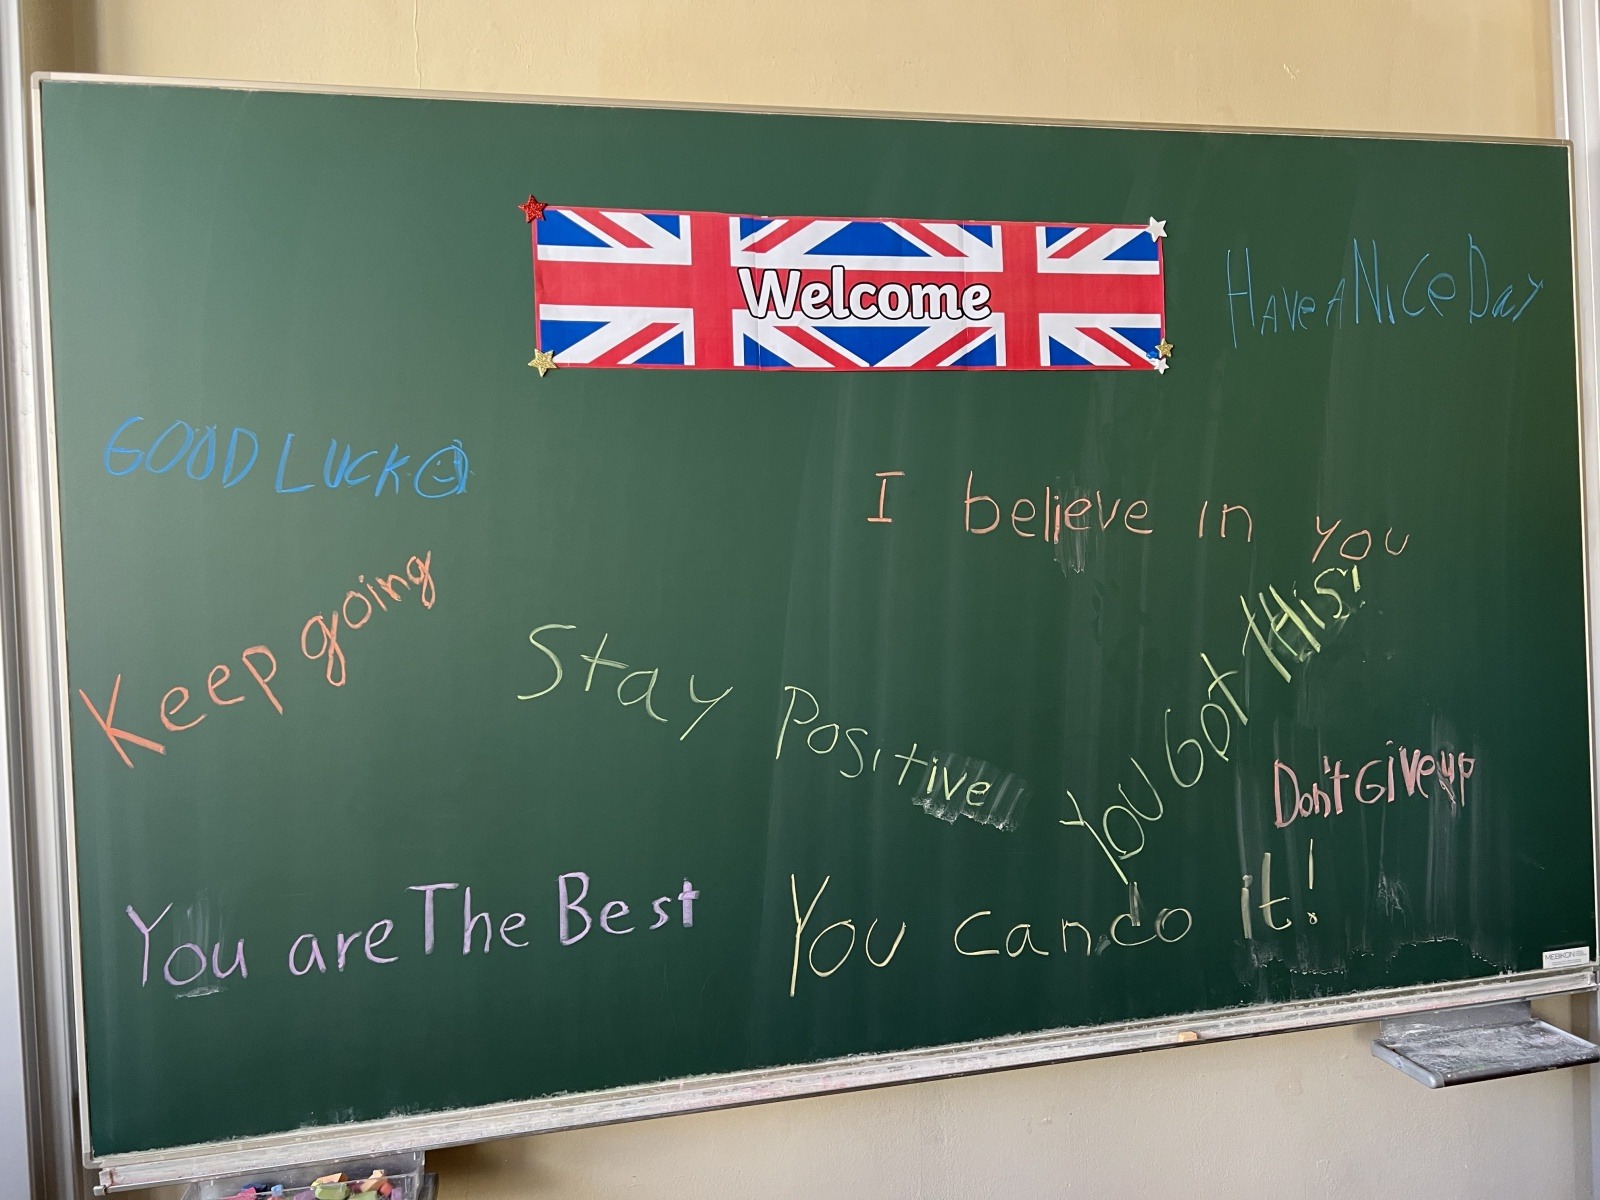 Welcome
Have A Nice Day
GOOD LUCK
I believe in you
Keep going
Stay Positive
You Got this!
Don't Give up
You are The Best
You can do it!
MEBIKON